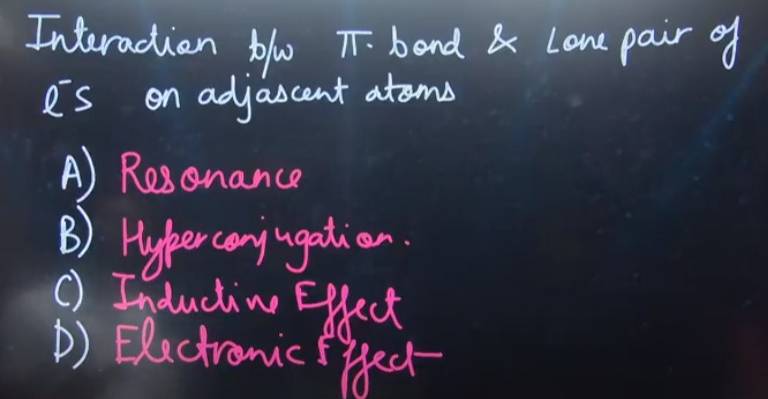 Interaction b/w π-bond & Lone pair of
e⁻s on adjascent atoms
A) Resonance
B) Hyperconjugation.
C) Inductive Effect
D) Electronic Effect